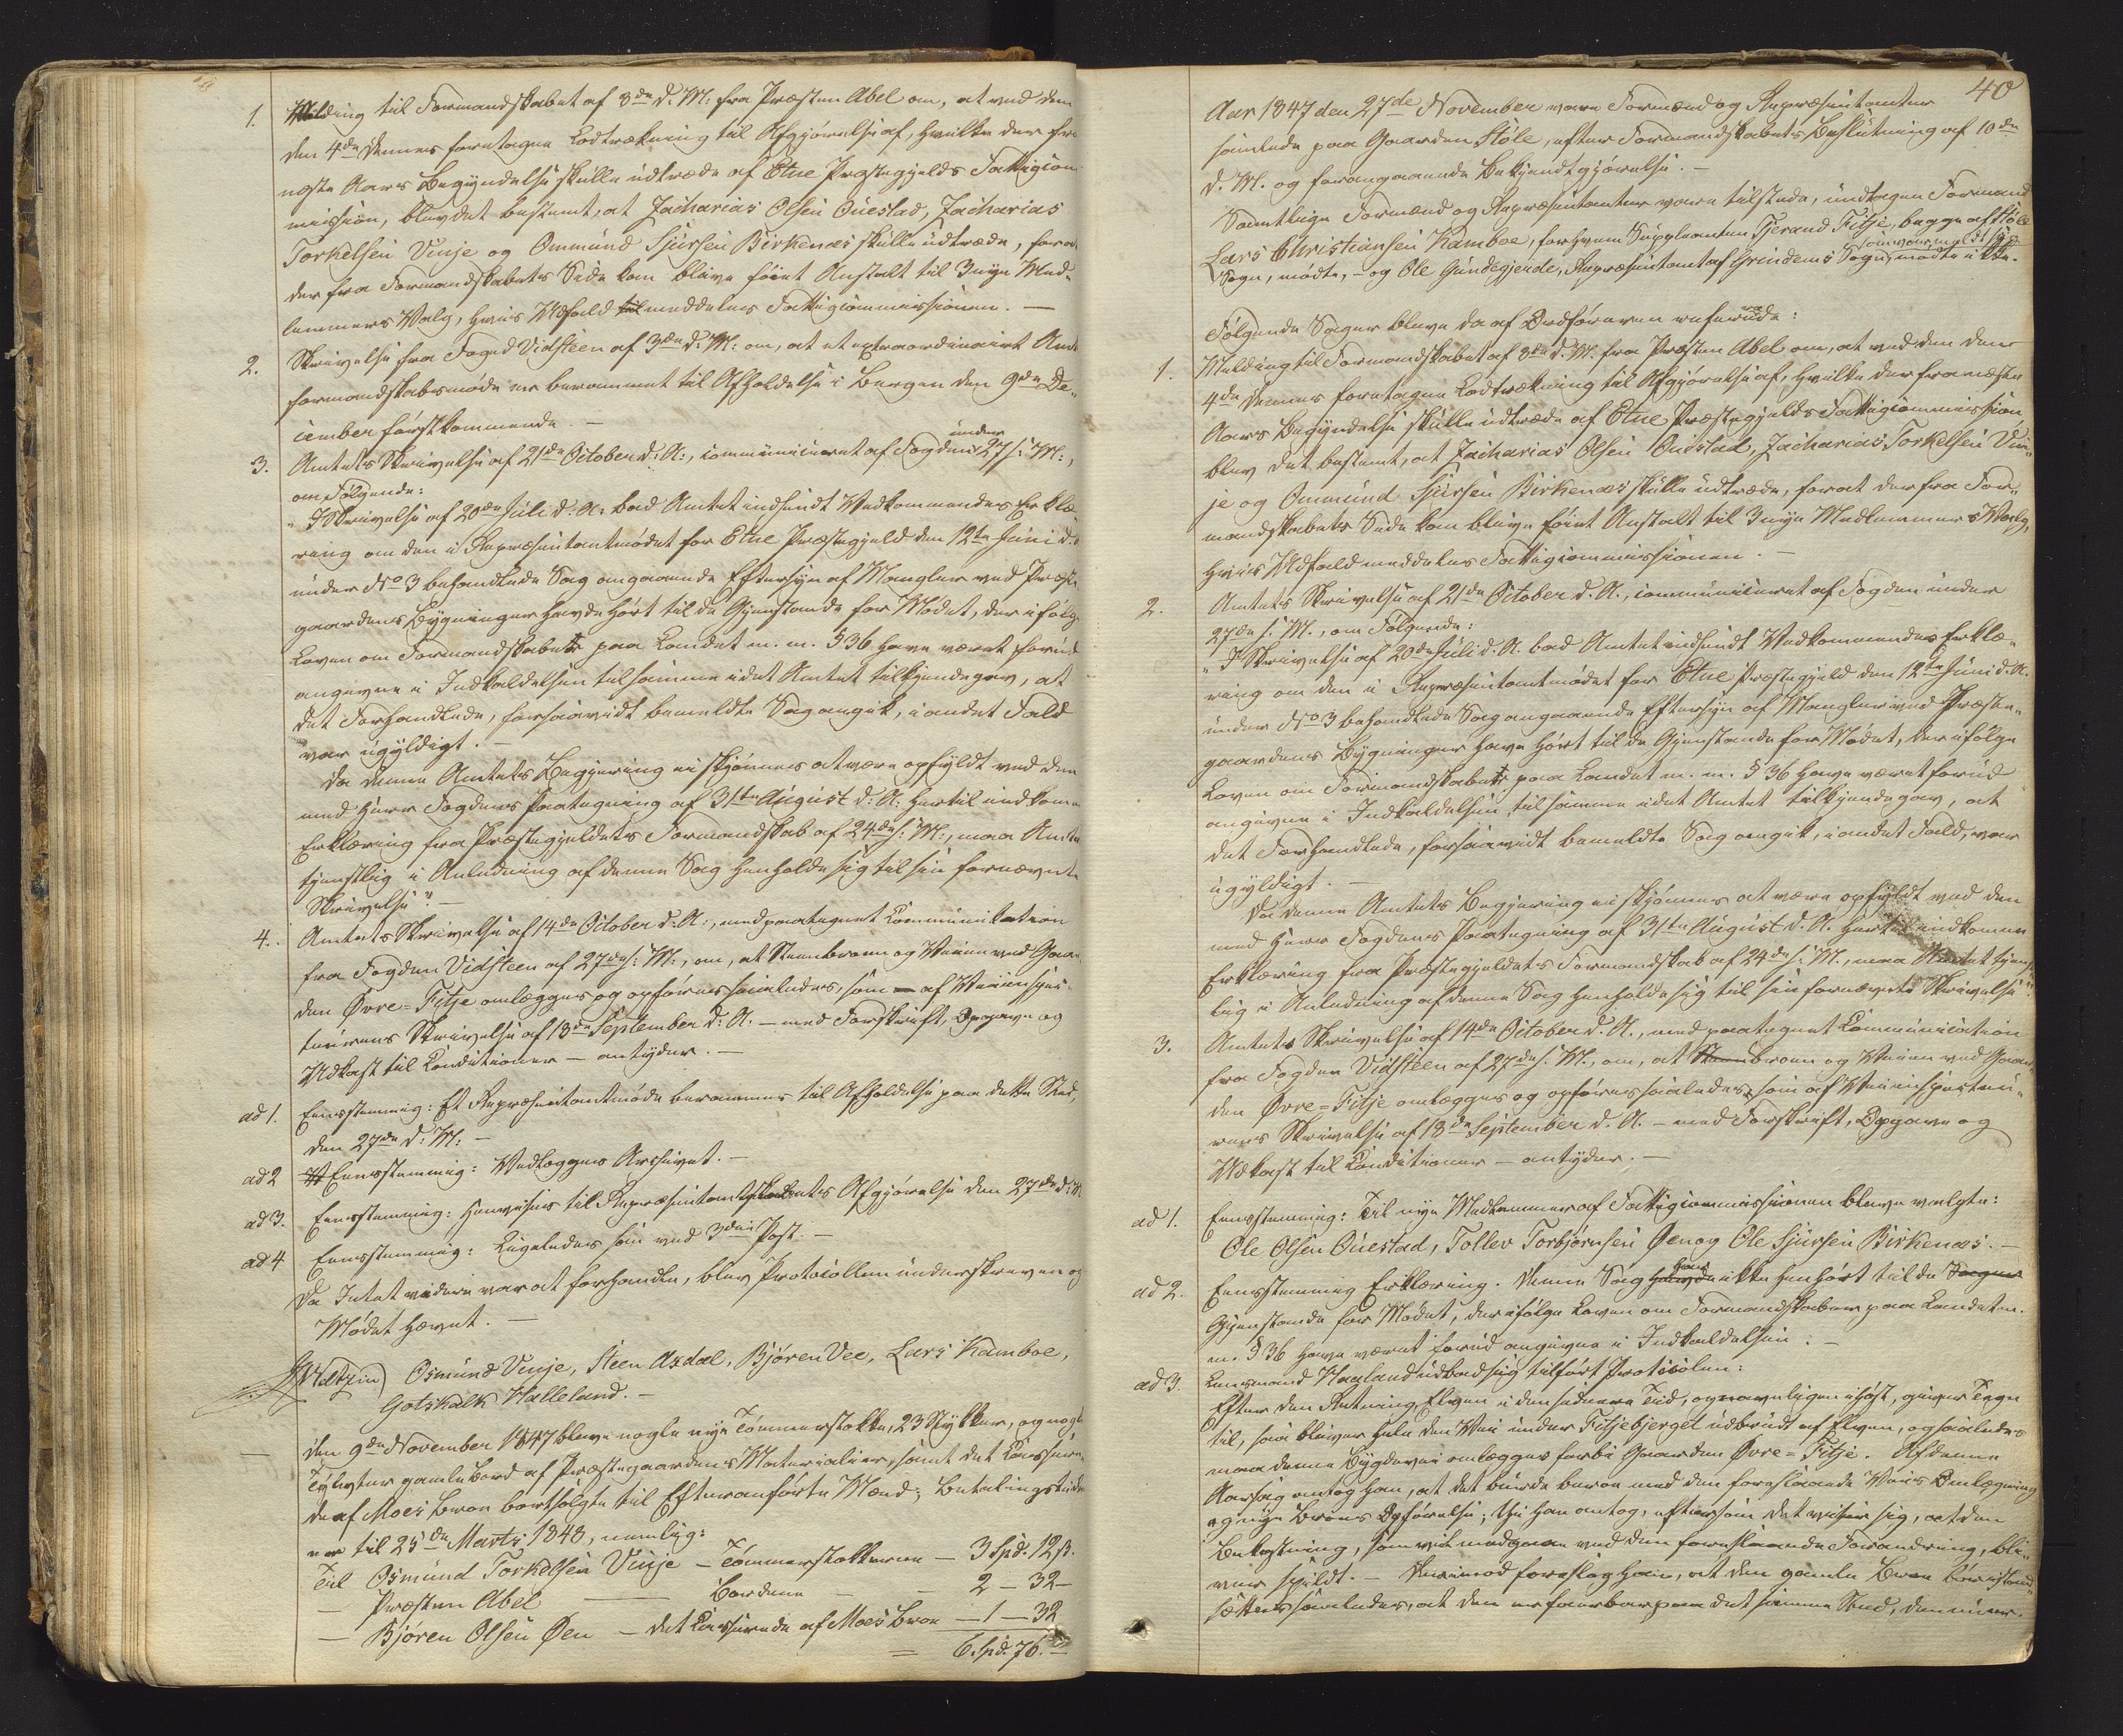 1. Melding til Formandskabet af 8de d: M: fra Præsten Abel om, at ved den
den 4de dennes foretagne Lodtrækning til Afgjørelse af, hvilke der fra
næste Aars Begyndelse skulle udtræde af Etne Præstegjelds Fattigcom-
mission, blev det bestemt, at Zacharias Olsen Qvestad, Zacharias
Torkelsen Vinje og Ommund Sjursen Birkenæs skulle udtræde, forat
der fra Formandskabets Side kan blive føiet Anstalt til 3 nye Med-
lemmers Valg, hvis Udfald meddeles Fattigcommissionen. —
2. Skrivelse fra Foged Vidsteen af 3die d: M: om, at et extraordinairt Amts
formandskabsmøde er berammet til Afholdelse i Bergen den 9de De-
cember førstkommende. —
3. Amtets Skrivelse af 21de October d: A:, communiceret af Fogden under 27 s: M:,
om Følgende:
"I Skrivelse af 20de Juli d: A: bad Amtet indsendt Vedkommendes Erklæ-
ring om den i Repræsentantmødet for Etne Præstegjeld den 12te Juni d. A.
under No 3 behandlede Sag angaaende Eftersyn af Mangler ved Præste-
gaardens Bygninger havde hørt til de Gjenstande for Mødet, der ifølge
Loven om Formandskaber paa Landet m. m. § 36 have været forud
angivne i Indkaldelsen til samme idet Amtet tilkjendegav, at
det Forhandlede, forsaavidt bemeldte Sag angik, i andet Fald
var ugyldigt. —
Da denne Amtets Begjering ei skjønnes at være opfyldt ved den
med Herr Fogdens Paategning af 31te August d: A: hertil indkomne
Erklæring fra Præstegjeldets Formandskab af 24de s: M:, maa Amtet
tjenstlig i Anledning af denne Sag henholde sig til sin fornævnte
Skrivelse". —
4. Amtets Skrivelse af 14de October d: A:, med paategnet Communikation
fra Fogden Vidsteen af 27de s: M:, om, at Steenbroen og Veien ved Gaar-
den Øvre-Fitje omlægges og opføres saaledes, som af Veiinspec-
teurens Skrivelse af 18de September d: A. — med Forskrift, Opgave og
Udkast til Conditioner — antyder. —
ad 1. Eenstemmig: Et Repræsentantmøde berammes til Afholdelse paa dette Sted,
den 27de d: M: —
ad 2 Eenstemmig: Vedlægges Archivet. —
ad 3. Eenstemmig: Henvises til Repræsentantskabets Afgjørelse den 27de d: M.
ad 4 Eenstemmig: Ligeledes som ved 3die Post. —
Da Intet videre var at forhandle, blev Protocollen underskreven og
Mødet hævet. —
Osmund Vinje, Steen Axdal, Bjøren Vee, Lars Kamboe,
Gotskalk Halleland. —
— Den 9de November 1847 bleve nogle nye Tømmerstokke, 23 Stykker, og nogle
Tylvter gamle Bord af Præstegaardens Materialier, samt det Casserede
af Moes Broe bortsolgte til Efteranførte Mænd; Betalingstiden
er til 25de Marts 1848, nemlig:
Til Osmund Torkelsen Vinje — Tømmerstokkerne — 3 Spd. 12 ß.
— Præsten Abel — Bordene — 2 — 32 —
— Bjøren Olsen Øen — det Casserede af Moes Broe — 1 — 32
= 6. Spd. 76. —
40
Aar 1847 den 27de November vare Formænd og Repræsentanter
samlede paa Gaarden Støle, efter Formandskabets Beslutning af 10de
d. M. og foregaaende Bekjendtgjørelse. —
Samtlige Formænd og Repræsentanter vare tilstede, undtagen Formand
Lars Christiansen Kamboe, for hvem Suppleanten Tjerand Fitje, begge af Støle
Sogn, mødte, — og Ole Gundegjerde, Repræsentant af Grindems Sogn, som var meldt syg, mødte ikke.
Følgende Sager bleve da af Ordføreren refererede:
1. Melding til Formandskabet af 8de d. M. fra Præsten Abel om, at ved den den
4de dennes foretagne Lodtrækning til Afgjørelse af, hvilke der fra næste
Aars Begyndelse skulle udtræde af Etne Præstegjelds Fattigcommission
blev det bestemt, at Zacharias Olsen Qvestad, Zacharias Torkelsen Vin-
je og Ommund Sjursen Birkenæs skulle udtræde, forat der fra For-
mandskabets Side kan blive føiet Anstalt til 3 nye Medlemmers Valg,
hvis Udfald meddeles Fattigcommissionen. —
2. Amtets Skrivelse af 21de October d. A., communiceret af Fogden under
27de s. M., om Følgende:
"I Skrivelse af 20de Juli d. A. bad Amtet indsendt Vedkommendes Erklæ-
ring om den i Repræsentantmødet for Etne Præstegjeld den 12te Juni d. A.
under No 3 behandlede Sag angaaende Eftersyn af Mangler ved Præste-
gaardens Bygninger have hørt til de Gjenstande for Mødet, der ifølge
Loven om Formandskaber paa Landet m. m. § 36 have været forud
angivne i Indkaldelsen til samme idet Amtet tilkjendegav, at
det Forhandlede, forsaavidt bemeldte Sag angik, i andet Fald, var
ugyldigt. —
Da denne Amtets Begjering ei skjønnes at være opfyldt ved den
med Herr Fogdens Paategning af 31te August d. A. hertil indkomne
Erklæring fra Præstegjeldets Formandskab af 24de s. M., maa Amtet tjenst-
lig i Anledning af denne Sag henholde sig til sin fornævnte Skrivelse".
3. Amtets Skrivelse af 14de October d. A., med paategnet Communication
fra Fogden Vidsteen af 27de s. M., om, at Steenbroen og Veien ved Gaar-
den Øvre-Fitje omlægges og opføres saaledes, som af Veiinspecteu-
rens Skrivelse af 18de September d. A. — med Forskrift, Opgave og
Udkast til Conditioner — antyder. —
ad 1. Eenstemmig: Til nye Medlemmer af Fattigcommissionen bleve valgte:
Ole Olsen Qvestad, Tollev Torbjørnsen Øen og Ole Sjursen Birkenæs. —
ad 2. Eenstemmig Erklæring. Denne Sag havde ikke henhørt til de Sager
Gjenstande for Mødet, der ifølge Loven om Formandskaber paa Landet m.
m. § 36 have været forud angivne i Indkaldelsen. —
ad 3. Lensmand Haaland udbad sig tilført Protocolen:
Efter den Retning, Elven i den senere Tid, og navnligen i Høst, giver Tegn
til, som bliver hele den Vei under Fitjebjerget udbrudt af Elven, og saaledes
maa denne Bygdevei omlægges forbi Gaarden Øvre-Fitje. Af denne
Aarsag antog han, at det burde beroe med den foreslaaede Veis Omlægning
og nye Broes Opførelse; thi han antog, eftersom det viser sig, at den
Bekostning, som vil medgaae ved den foreslaaede Forandring, bli-
ver spildt. — Derimod foreslog han, at den gamle Broe
sættes saaledes, at den er farbar paa det samme Sted, den nu er.